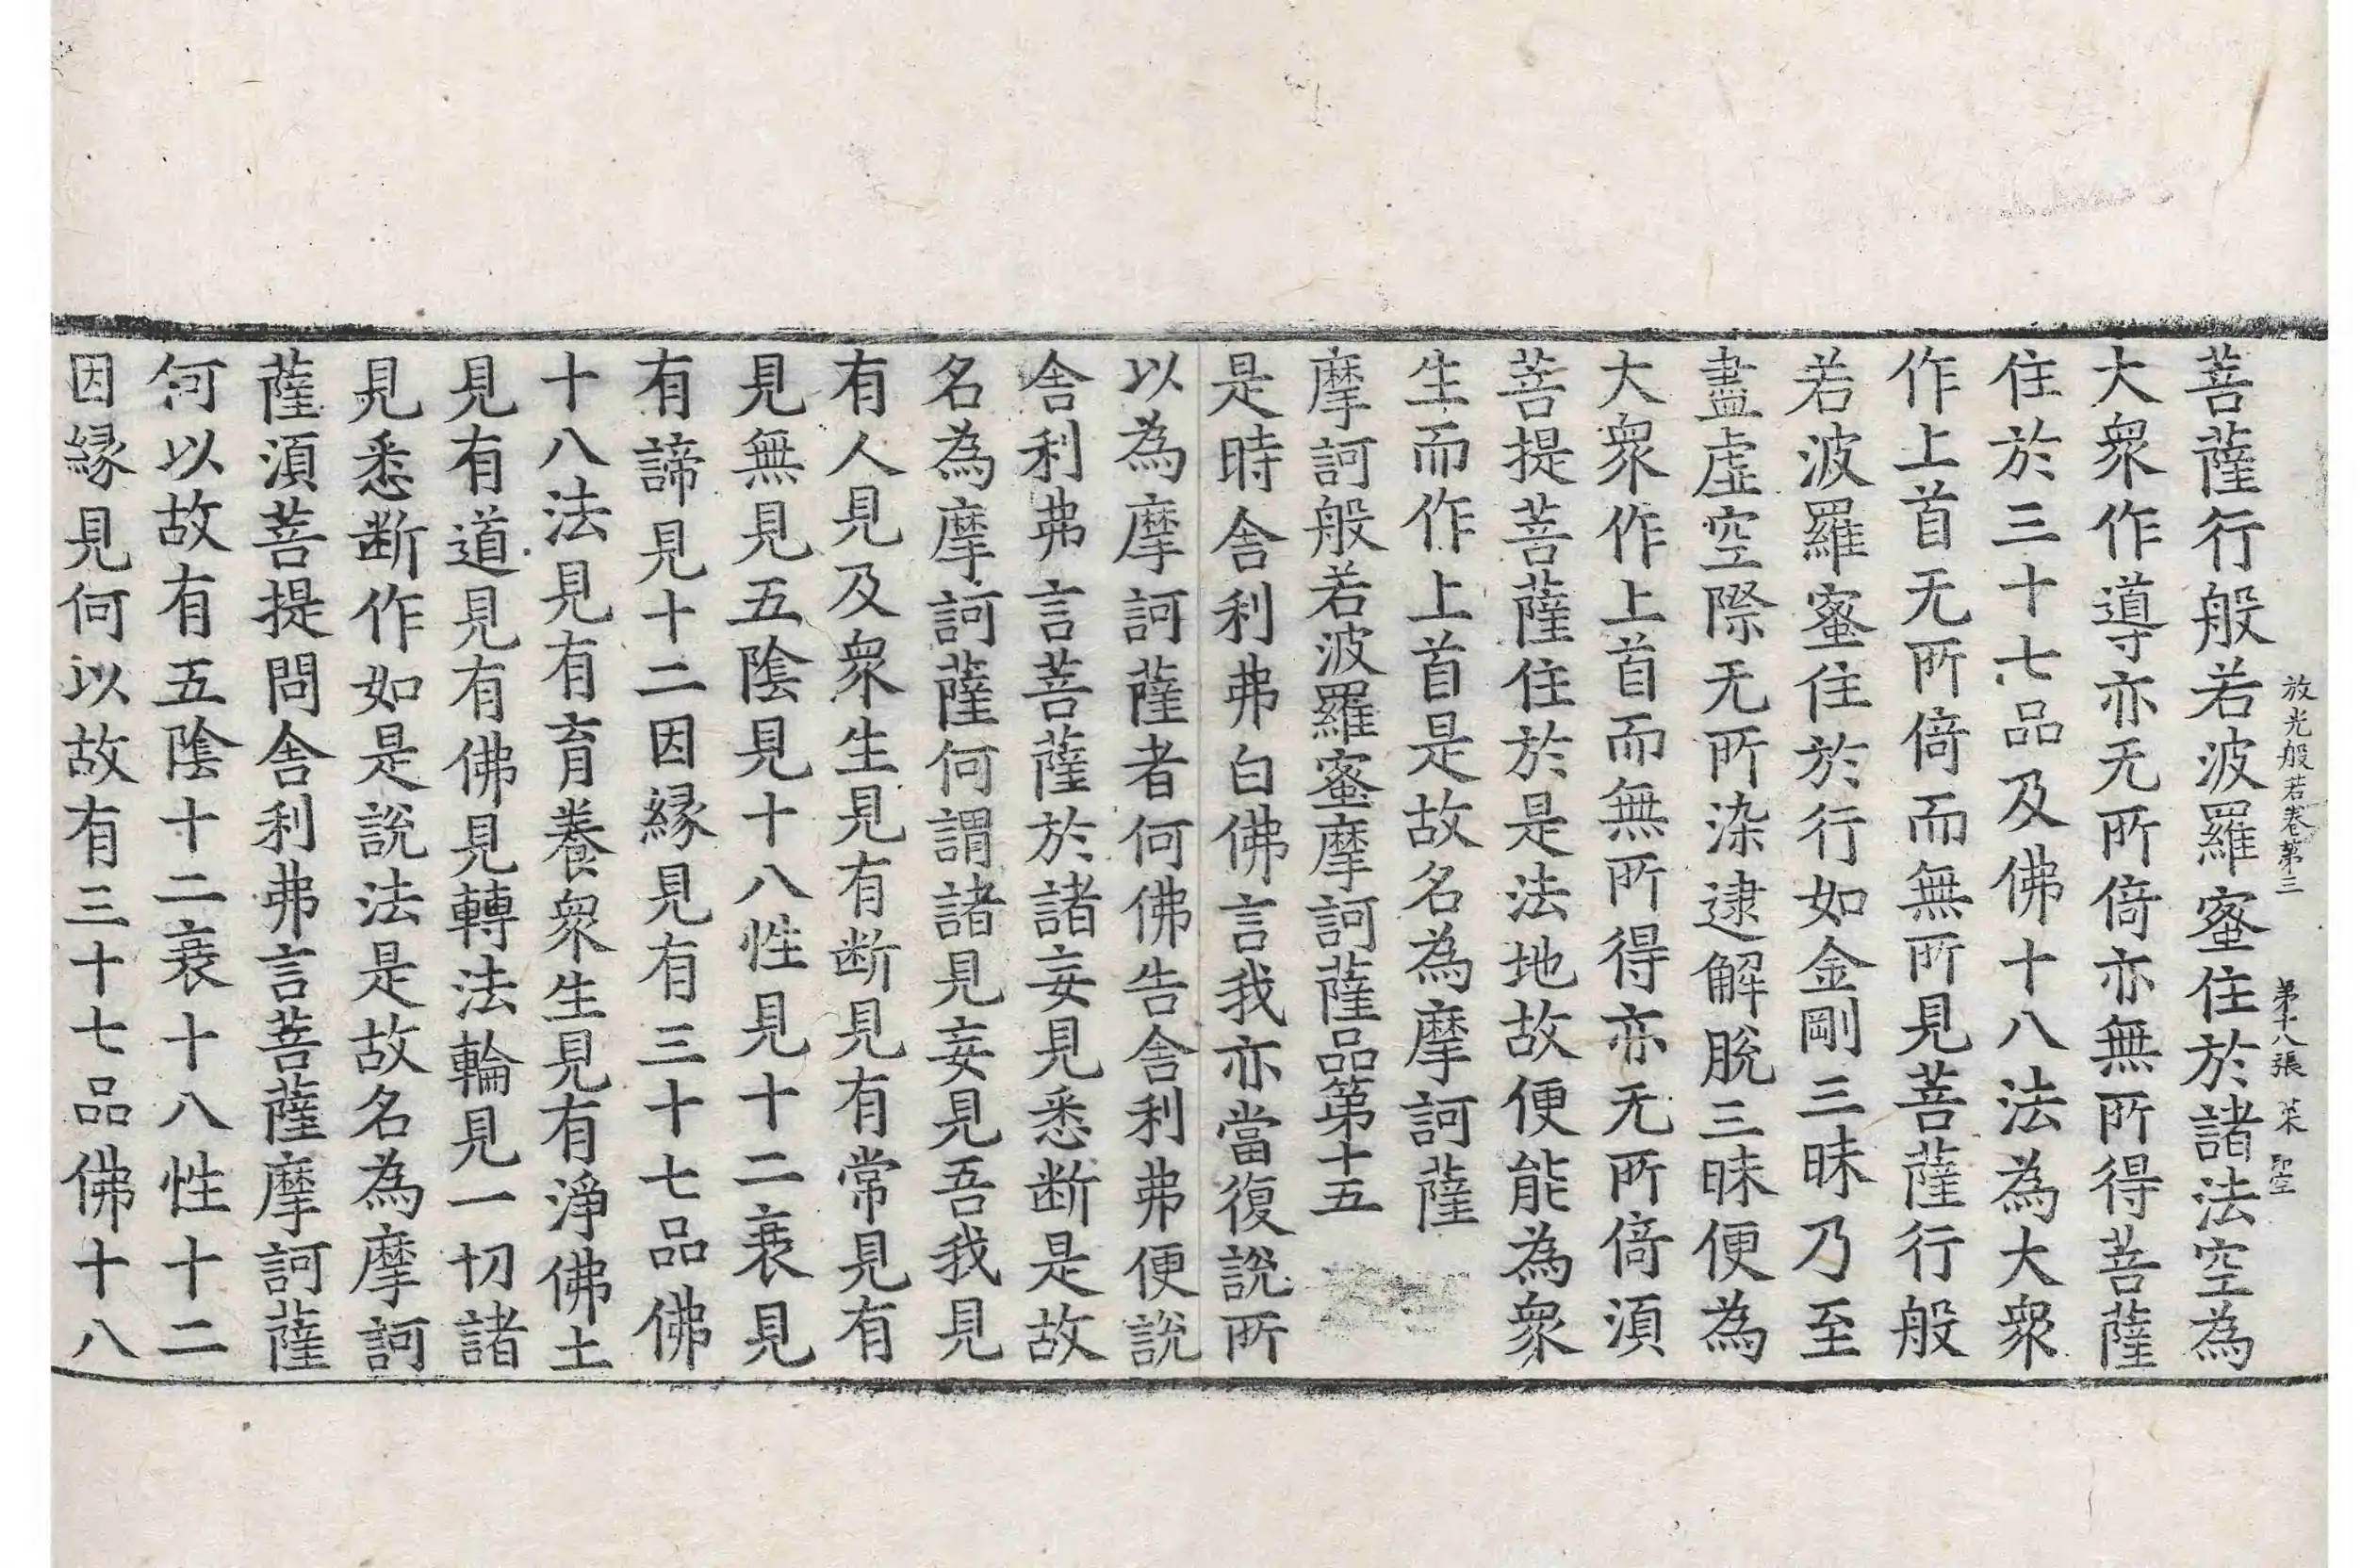 放光般若卷第三 第十八張 菜
菩薩行般若波羅蜜住於諸法空為
大衆作導亦无所倚亦無所得菩薩
住於三十七品及佛十八法為大衆
作上首无所倚而無所見菩薩行般
若波羅蜜住於行如金剛三昧乃至
盡虛空際无所染逮解脫三昧便為
大衆作上首而無所得亦无所倚湏
菩提菩薩住於是法地故便能為衆
生而作上首是故名為摩訶薩
摩訶般若波羅蜜摩訶薩品第十五
是時舍利弗白佛言我亦當復說所
以為摩訶薩者何佛告舍利弗便說
舍利弗言菩薩於諸妄見悉断是故
名為摩訶薩何謂諸見妄見吾我見
有人見及衆生見有断見有常見有
見無見五陰見十八性見十二衰見
有諦見十二因縁見有三十七品佛
十八法見有育養衆生見有淨佛土
見有道見有佛見轉法輪見一切諸
見悉断作如是說法是故名為摩訶
薩湏菩提問舍利弗言菩薩摩訶薩
何以故有五陰十二衰十八性十二
因縁見何以故有三十七品佛十八